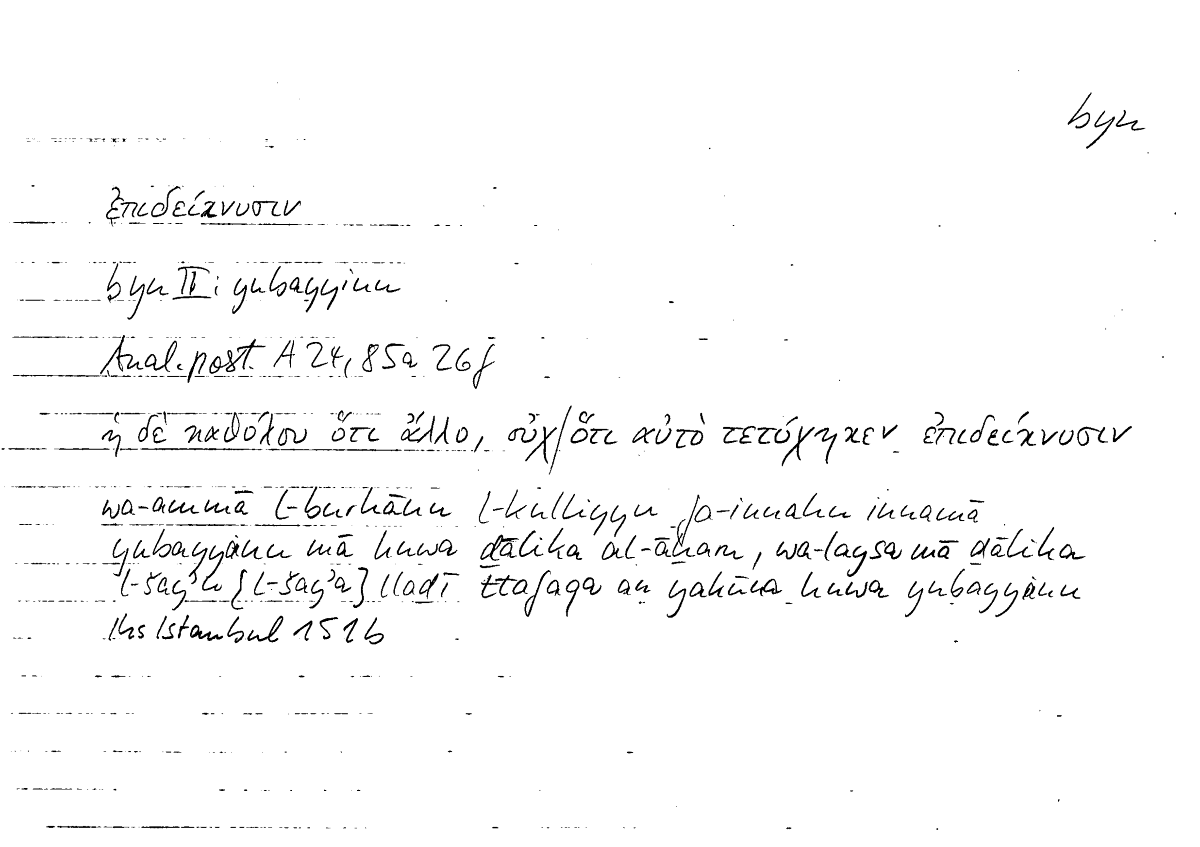 byn
ἐπιδείκνυσιν
byn II: yubayyinu
Anal. post. A 24, 85a 26f
ἡ δὲ καθόλου ὅτι ἄλλο, οὐχ/ὅτι αὐτὸ τετύχηκεν ἐπιδείκνυσιν
wa-ammā l-burhānu l-kulliyyu fa-innahu innamā
yubayyinu mā huwa ḏālika al-āḫaru, wa-laysa mā ḏālika
l-šayʾu {l-šayʾa} llaḏī ttafaqa an yakūna huwa yubayyinu
Hs Istanbul 151b